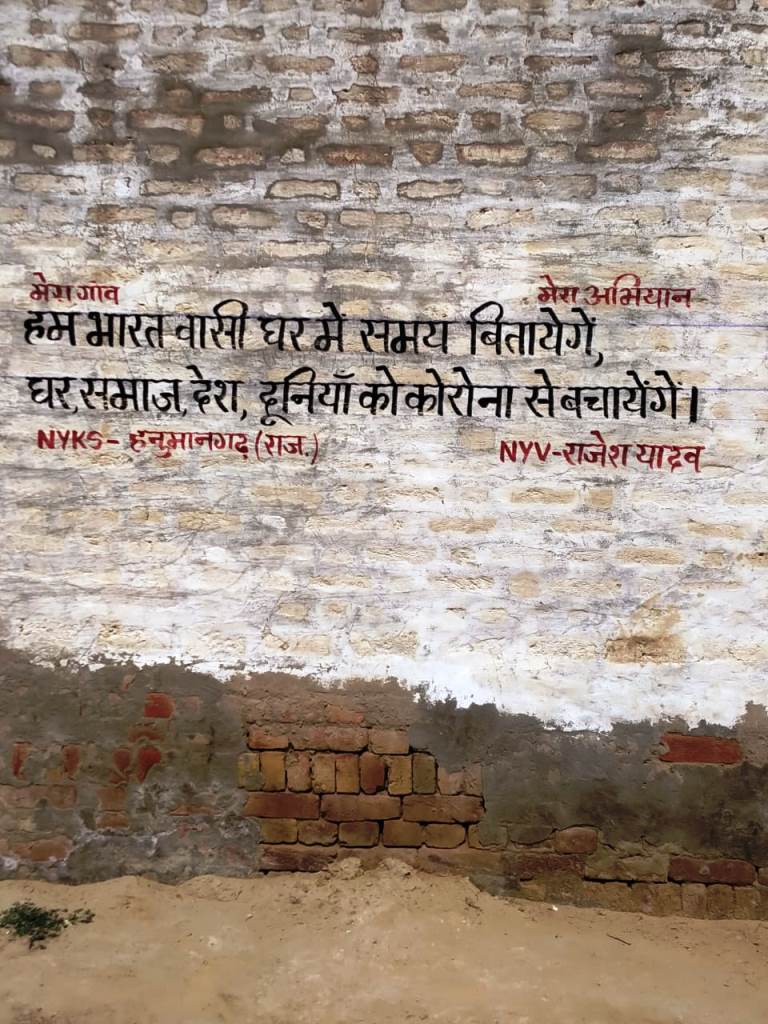 मेरा गाँव मेरा अभियान
हम भारत वासी घर में समय बितायेगें,
घर, समाज, देश, दूनियाँ को कोरोना से बचायेंगें।
NYKS- हनुमानगढ़ (राज.) NYV-राजेश यादव